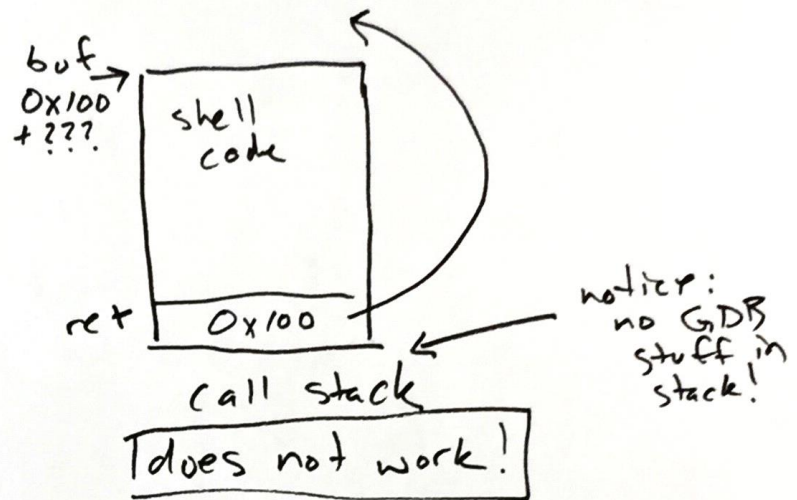 buf
0x100
+ ???
shell
code
ret
0x100
notice:
no GDB
stuff in
stack!
call stack
does not work!